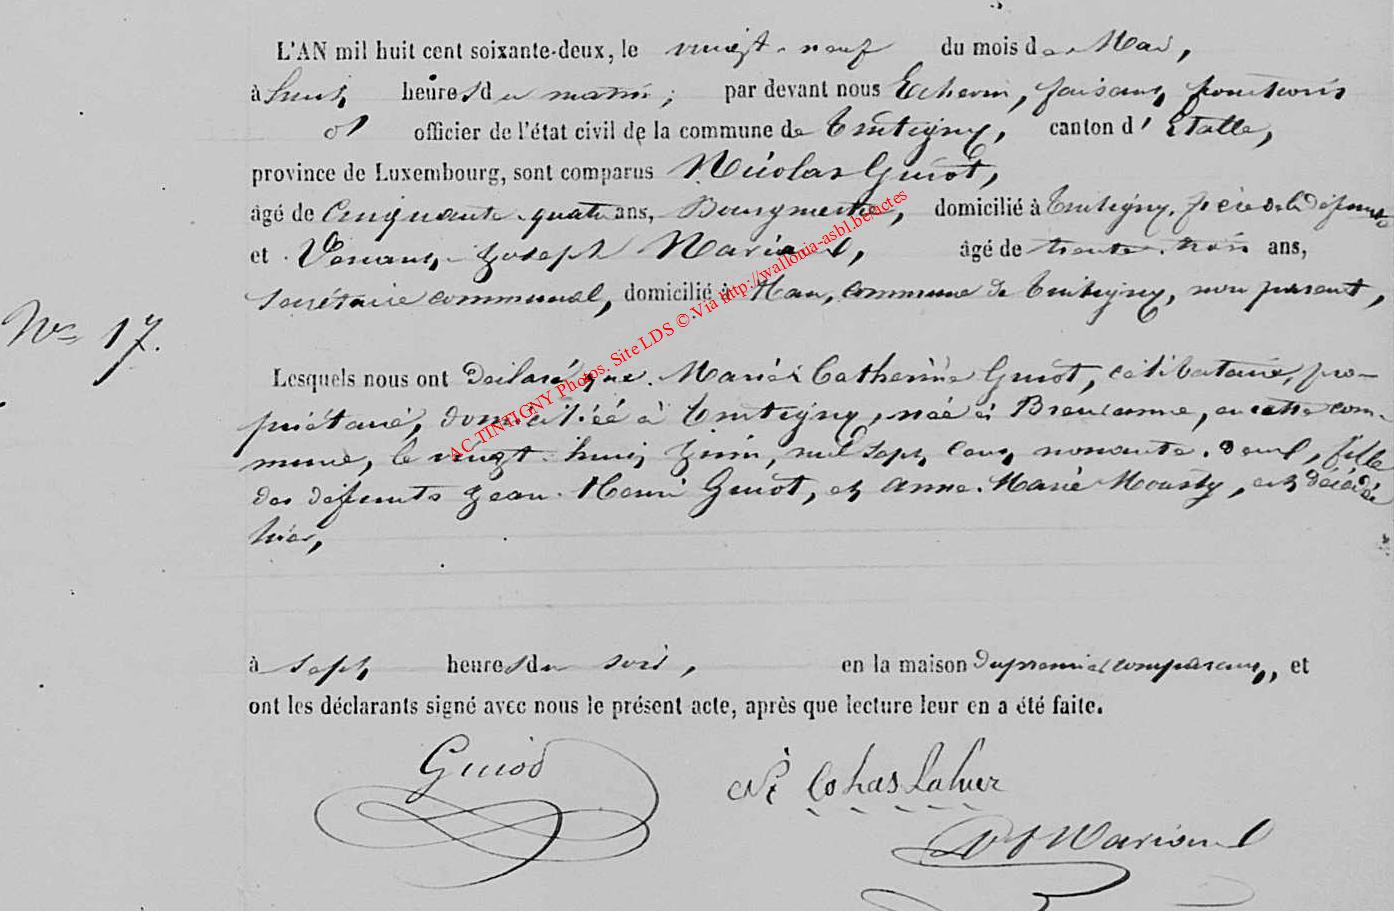 L'AN mil huit cent soixante-deux, le vingt-neuf du mois de Mai,
à huit heures du matin; par devant nous Echevin, faisant fonctions
d' officier de l'état civil de la commune de Tintigny, canton d'Etalle,
province de Luxembourg, sont comparus Nicolas Guiot,
âgé de Cinquante-quatre ans, Bourgmestre, domicilié à Tintigny, frère de la défunte
et Venant-Joseph Marion, âgé de trente-trois ans,
secrétaire communal, domicilié à Han, commune de Tintigny, non parent,
N° 17.
Lesquels nous ont déclaré que Marie Catherine Guiot, célibataire, pro-
priétaire, domiciliée à Tintigny, née à Breuvanne, en cette com-
mune, le vingt-huit Juin, mil sept cent nonante-deux, fille
des défunts Jean-Henri Guiot, et Anne-Marie Mousty, est décédée
hier,
à sept heures du soir, en la maison du premier comparant, et
ont les déclarants signé avec nous le présent acte, après que lecture leur en a été faite.
Guiot
AC TINTIGNY Photos. Site LDS © Via http://wallonia-asbl.be/actes